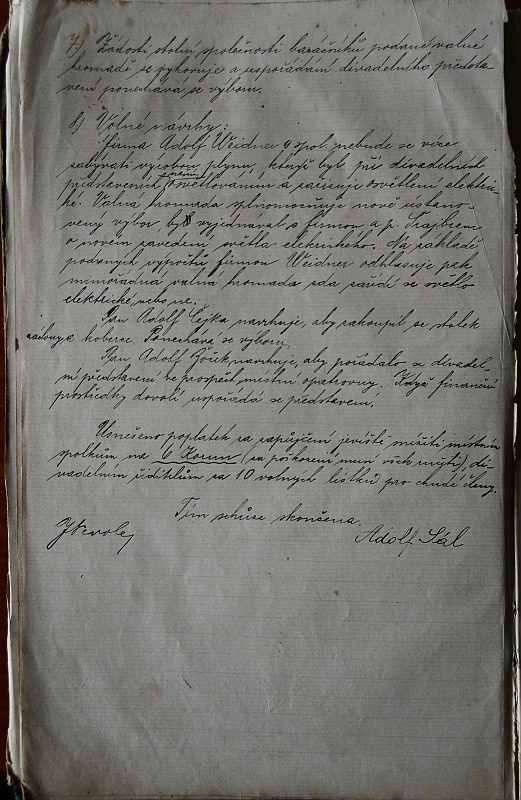 7.) Žádosti stolní společnosti baráčníků podané valné
hromadě se vyhovuje a uspořádám divadelního předsta-
vení ponechává se výboru.
8.) Volné návrhy:
Firma Adolf Weidner a spol. nebude se více
zabývati výrobou plynu, kterýž byl při divadelních
představeních osvětlováním a zařizuje osvětlení elektric-
ké. Valná hromada splnomocňuje nově ustano-
vený výbor by vyjednával s firmou a p.
o novém zavedení světla elektrického. Na základě
podaných výpočtů firmou Weidner odhlasuje pak
mimořádná valná hromada zda zavdí se světlo
elektrické, nebo ne.
Pan Adolf Čejka navrhuje, aby zakoupil se stolek
koberce. Ponechává se výboru.
Pan Adolf navrhuje, aby pořádalo se divadel
ní představení ve prospěch místní opatrovny. Když finanční
prostředky dovolí uspořádá se představení.
Usnešeno poplatek za zapůjčení jeviště snížiti místním
spolkům na 6 Korun (za poškození musí všek ručiti), di-
vadelním ředitelům za 10 volných lístků pro chudé členy.
Tím schůze skončena.
Adolf Sál